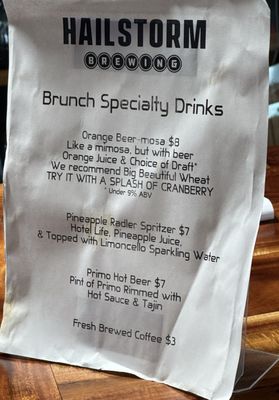 HAILSTORM
BREWING
Brunch Specialty Drinks
Orange Beer-mosa $8
Like a mimosa, but with beer
Orange Juice & Choice of Draft*
We recommend Big Beautiful Wheat
TRY IT WITH A SPLASH OF CRANBERRY
* Under 9% ABV
Pineapple Radler Spritzer $7
Hotel Life, Pineapple Juice,
& Topped with Limoncello Sparkling Water
Primo Hot Beer $7
Pint of Primo Rimmed with
Hot Sauce & Tajin
Fresh Brewed Coffee $3